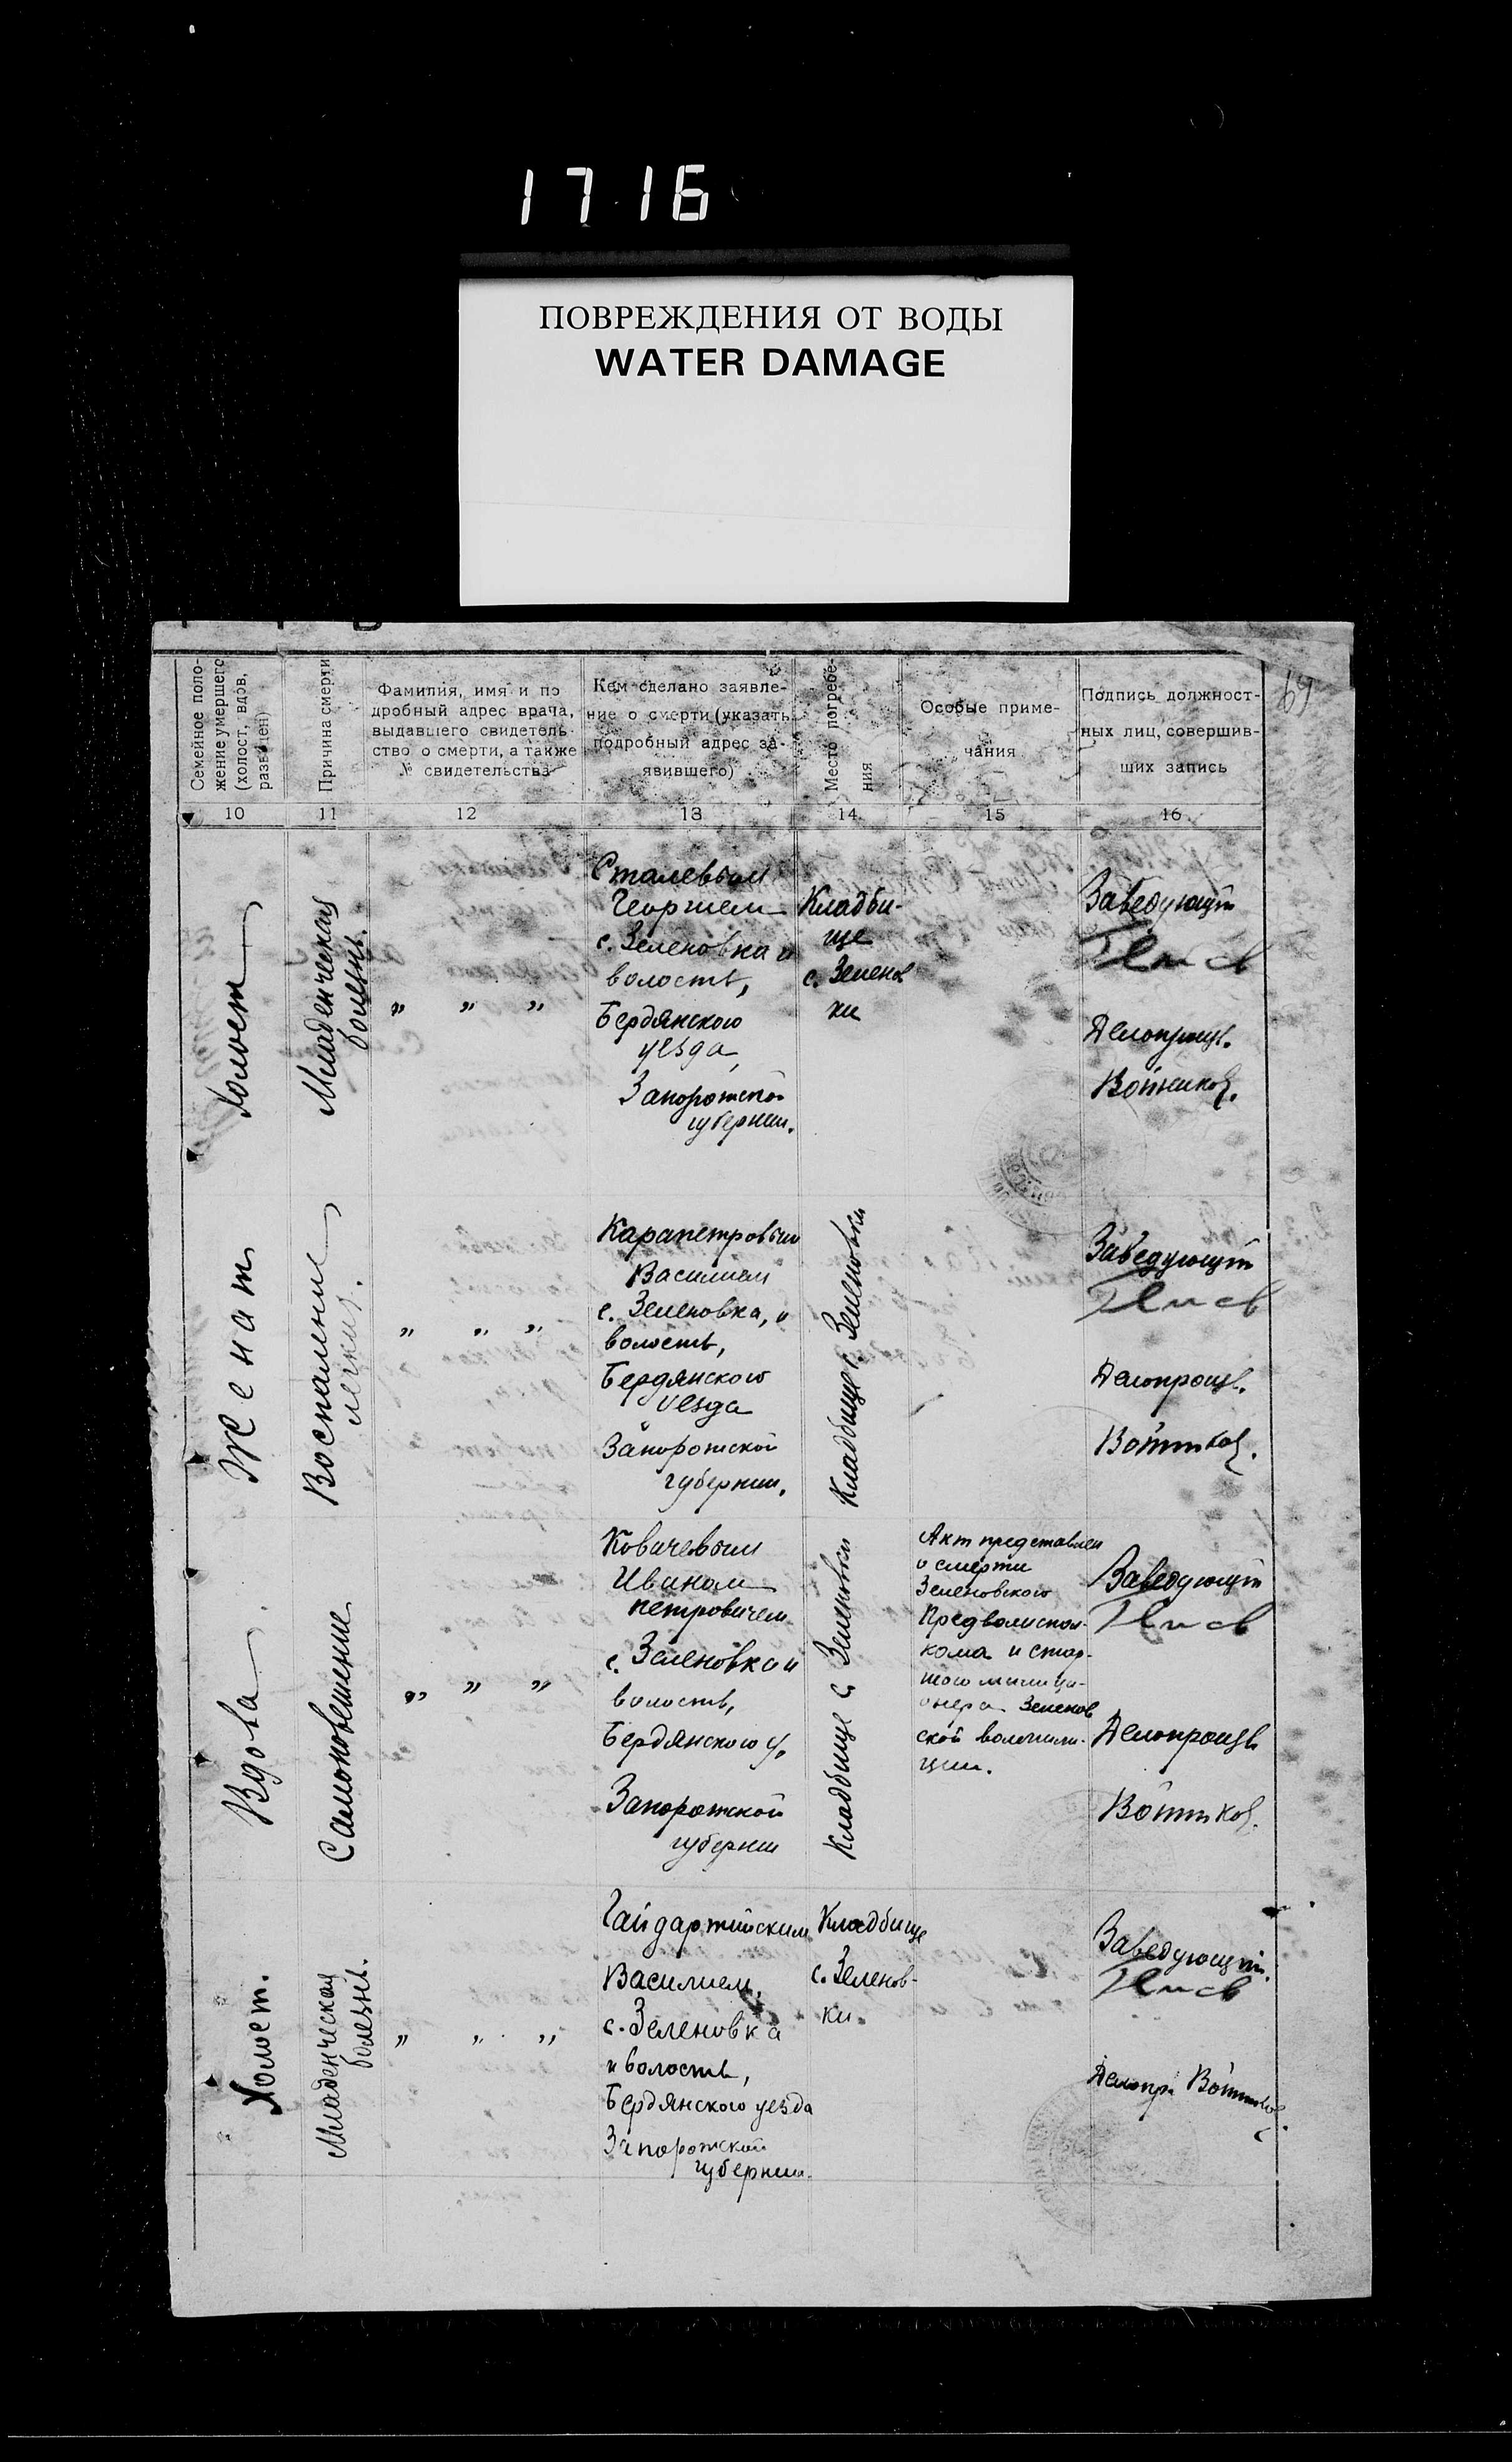 1716
ПОВРЕЖДЕНИЯ ОТ ВОДЫ
WATER DAMAGE
69
Семейное поло-
жение умершего
(холост, вдов,
разведен)
Причина смерти
Фамилия, имя и по
дробный адрес врача,
выдавшего свидетель-
ство о смерти, а также
№ свидетельства
Кем сделано заявле-
ние о смерти (указать
подробный адрес за-
явившего)
Место погребе-
ния
Особые приме-
чания
Подпись должност-
ных лиц, совершив-
ших запись
10 11 12 13 14 15 16
Холост
Младенческая
болезнь.
„ „ „
Сталевым
Георгием
с. Зеленовка и
волость,
Бердянского
уезда,
Запорожской
губернии.
Кладби-
ще
с. Зеленов
ки
Заведующий
Делопроизв.
Войников.
Женат
Воспаление
легких.
„ „ „
Карапетровым
Василием
с. Зеленовка, и
волость,
Бердянского
уезда
Запорожской
губернии.
Кладбище с. Зеленовки
Заведующий
Делопроизв.
Вдова
Самоповешение
„ „ „
Ковачевым
Иваном
Петровичем
с. Зеленовка и
волость,
Бердянского у.
Запорожской
губернии
Кладбище с. Зеленовки
Акт представлен
о смерти
Зеленовского
Предволиспол-
кома и стар-
шого милици-
онера Зеленов
ской волмили-
ции.
Заведующий
Делопроизв
Холост.
Младенческая
болезнь.
„ „ „
Гайдаржийским
Василием,
с. Зеленовка
и волость,
Бердянского уезда
Запорожской
губернии.
Кладбище
с. Зеленов-
ки.
Заведующий.
Делопр.